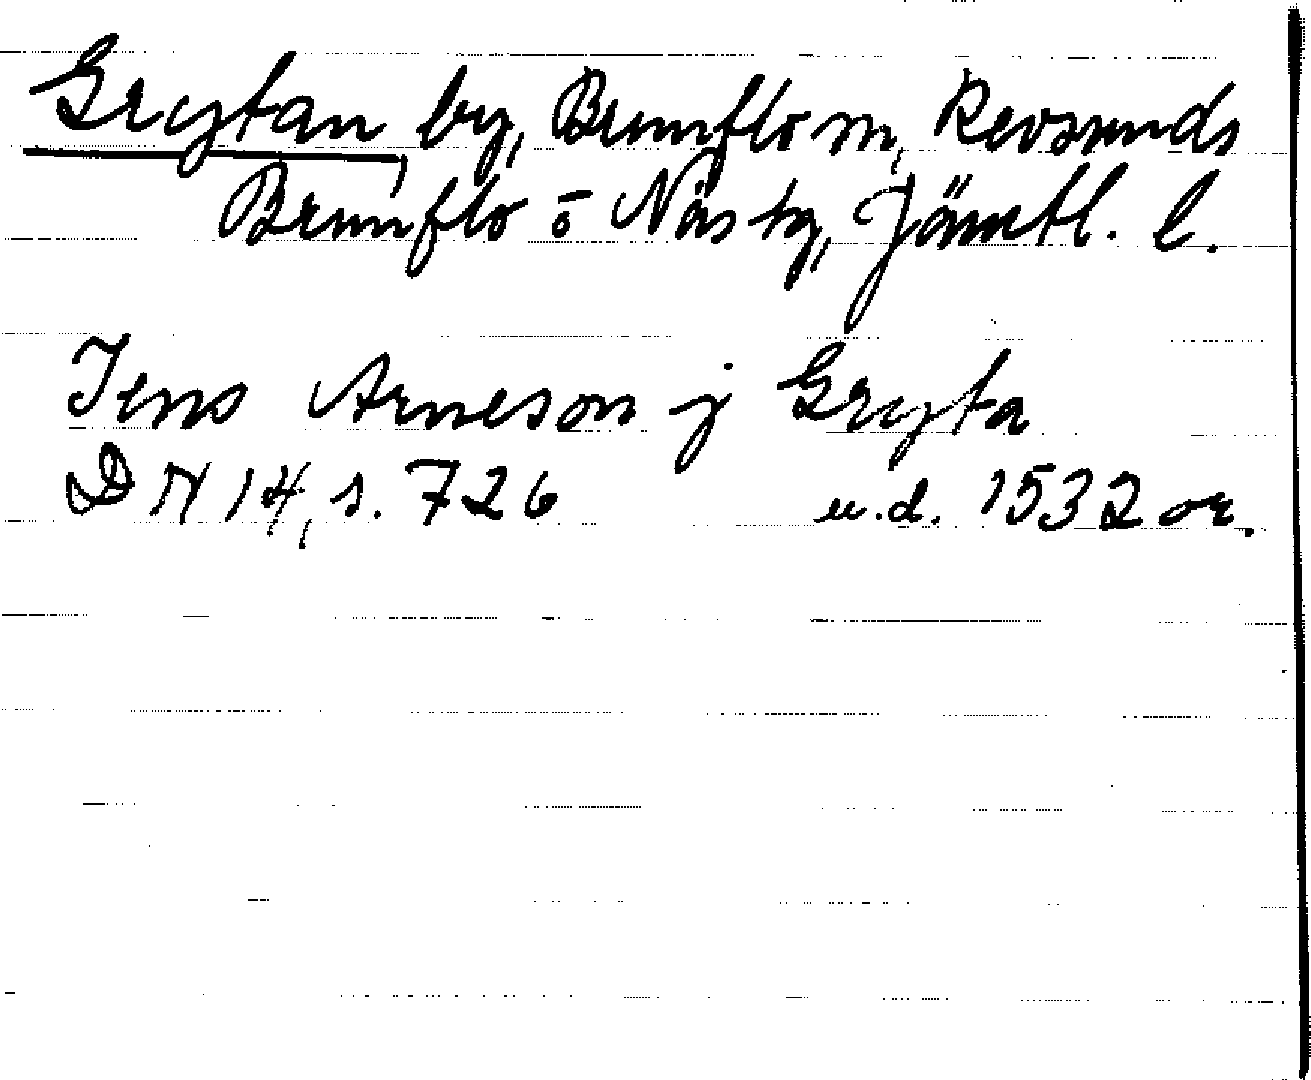 Grytan, by, Brunflo sn, Revsunds
Brunflo o Näs tg, Jämtl. l.
Jens Arneson j Gryta
DN 14, s. 726 u.d. 1532 or.